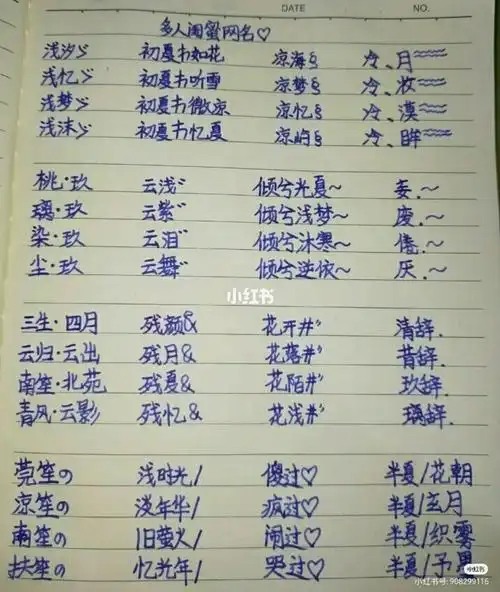 DATE NO.
多人闺蜜网名♡
浅汐ジ 初夏力如花 凉海§ 冷、月~~~
浅忆ジ 初夏力听雪 凉梦§ 冷、妆~~~
浅梦ジ 初夏力微凉 凉忆§ 冷、漠~~~
浅沫ジ 初夏力忆夏 凉屿§ 冷、眸~~~
桃·玖 云浅〃 倾兮光夏~ 妄.~
璃·玖 云紫〃 倾兮浅梦~ 废.~
染·玖 云泪〃 倾兮沐寒~ 倦.~
尘·玖 云舞〃 倾兮逆依~ 厌.~
小红书
三生·四月 残颜& 花开#〃 清辞.
云归·云出 残月& 花落#〃 昔辞.
南笙·北苑 残夏& 花陌#〃 玖辞.
青风·云影 残忆& 花浅#〃 璃辞.
莞笙の 浅时光/ 傻过♡ 半夏/花朝
凉笙の 淡年华/ 疯过♡ 半夏/玄月
南笙の 旧萤火/ 闹过♡ 半夏/织雾
扶笙の 忆光年/ 哭过♡ 半夏/予
小红书
小红书号: 908299116